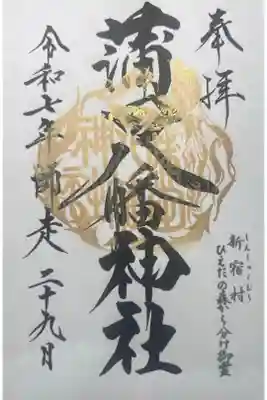 奉拝
蒲八幡神社
令和七年師走二十九日
新宿村
しんしゅくむら
ひえだの森から分け御霊